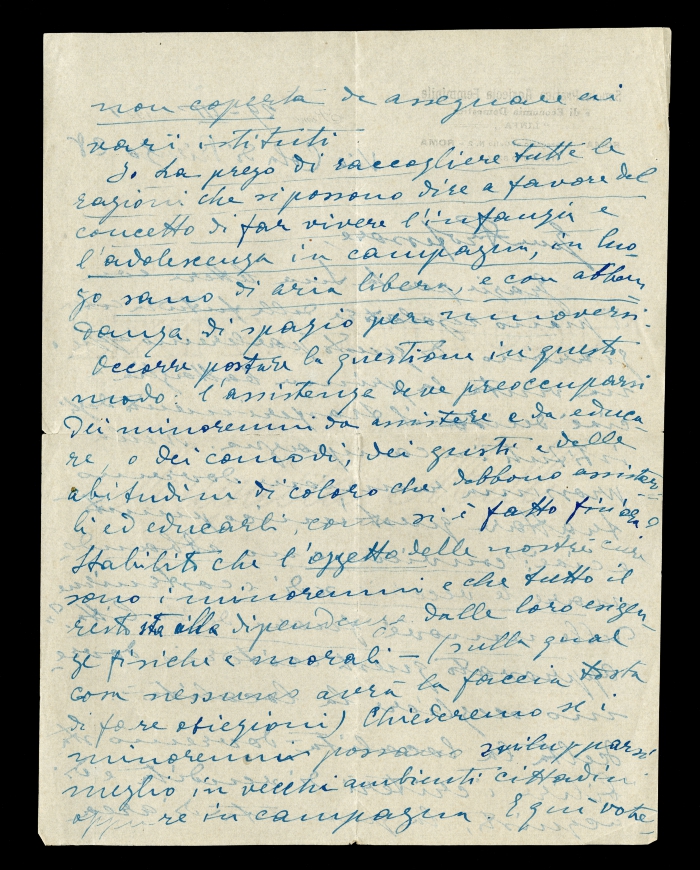 non coperta da assegnare ai
vari istituti
Io La prego di raccogliere tutte le
ragioni che si possono dire a favore del
concetto di far vivere l'infanzia e
l'adolescenza in campagna, in luo-
go sano di aria libera, e con abbon
danza di spazio per muoversi.
Occorre postare la questione in questo
modo: l'assistenza deve preoccuparsi
dei minorenni da assistere e da educa
re, o dei comodi, dei gusti e delle
abitudini di coloro che debbono assister
li ed educarli, come si è fatto fin'ora
Stabilito che l'oggetto delle nostre cure
sono i minorenni e che tutto il
resto sta alla dipendenza dalle loro esigen
ze fisiche e morali – (sulla qual
cosa nessuno avrà la faccia tosta
di fare obiezioni) Chiederemo se i
minorenni possano svilupparsi
meglio in vecchi ambienti cittadini
oppure in campagna. E qui vote-